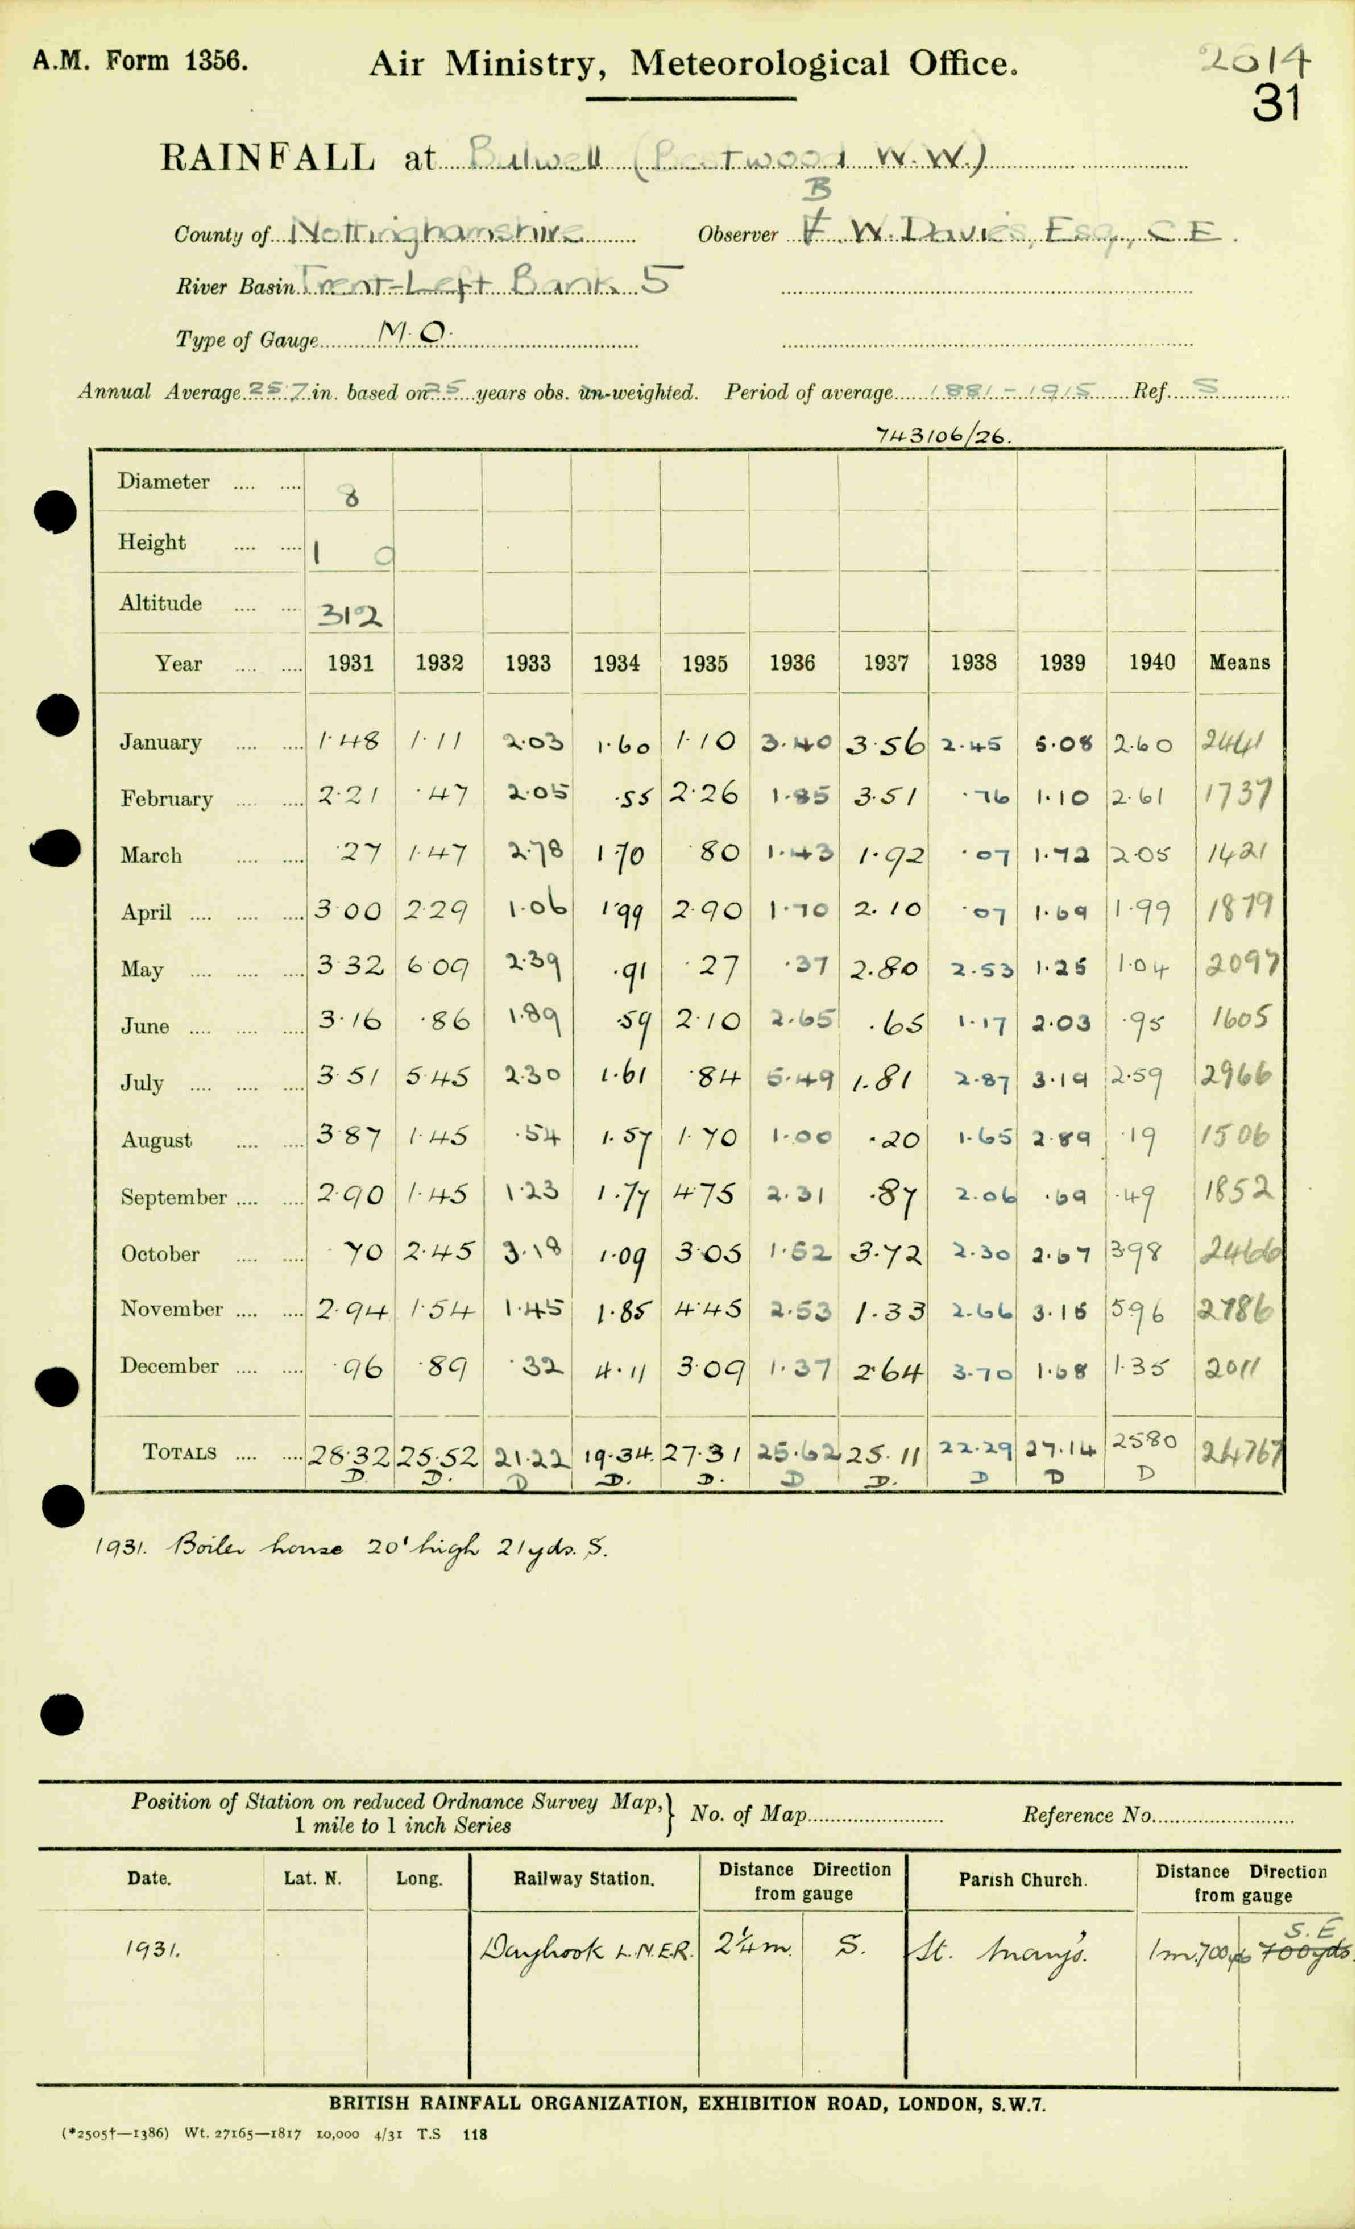 A.M. Form 1356. Air Ministry, Meteorological Office. 2614
31
RAINFALL at Bulwell (Bestwood W.W.)
B
County of Nottinghamshire Observer F W. Davies, Esq., C.E.
River Basin Trent-Left Bank 5
Type of Gauge M.O.
Annual Average 25.7 in. based on 25 years obs. un-weighted. Period of average 1881-1915 Ref. S
743106/26.
Diameter .... .... 8
Height .... .... 1 0
Altitude .... .... 312
Year .... .... 1931 1932 1933 1934 1935 1936 1937 1938 1939 1940 Means
January .... .... 1.48 1.11 2.03 1.60 1.10 3.40 3.56 2.45 5.08 2.60 2441
February .... .... 2.21 .47 2.05 .55 2.26 1.85 3.51 .76 1.10 2.61 1737
March .... .... .27 1.47 2.78 1.70 .80 1.43 1.92 .07 1.72 2.05 1421
April .... .... .... 3.00 2.29 1.06 1.99 2.90 1.70 2.10 .07 1.69 1.99 1879
May .... .... .... 3.32 6.09 2.39 .91 .27 .37 2.80 2.53 1.25 1.04 2097
June .... .... .... 3.16 .86 1.89 .59 2.10 2.65 .65 1.17 2.03 .95 1605
July .... .... .... 3.51 5.45 2.30 1.61 .84 5.49 1.81 2.87 3.19 2.59 2966
August .... .... 3.87 1.45 .54 1.57 1.70 1.00 .20 1.65 2.89 .19 1506
September .... .... 2.90 1.45 1.23 1.77 4.75 2.31 .87 2.06 .69 .49 1852
October .... .... .70 2.45 3.18 1.09 3.05 1.52 3.72 2.30 2.67 3.98 2466
November .... .... 2.94 1.54 1.45 1.85 4.45 2.53 1.33 2.66 3.15 5.96 2786
December .... .... .96 .89 .32 4.11 3.09 1.37 2.64 3.70 1.68 1.35 2011
TOTALS .... .... 28.32 25.52 21.22 19.34 27.31 25.62 25.11 22.29 27.14 25.80 24767
D. D. D D. D. D D. D D D
1931. Boiler house 20' high 21 yds. S.
Position of Station on reduced Ordnance Survey Map,} No. of Map Reference No.
1 mile to 1 inch Series
Date. Lat. N. Long. Railway Station. Distance Direction from gauge Parish Church. Distance Direction from gauge
S.E
1931. Daybrook L.N.E.R. 2¼m. S. St. Mary's. 1m.700yds 700yds
BRITISH RAINFALL ORGANIZATION, EXHIBITION ROAD, LONDON, S.W.7.
(*2505†—1386) Wt. 27165—1817 10,000 4/31 T.S 118